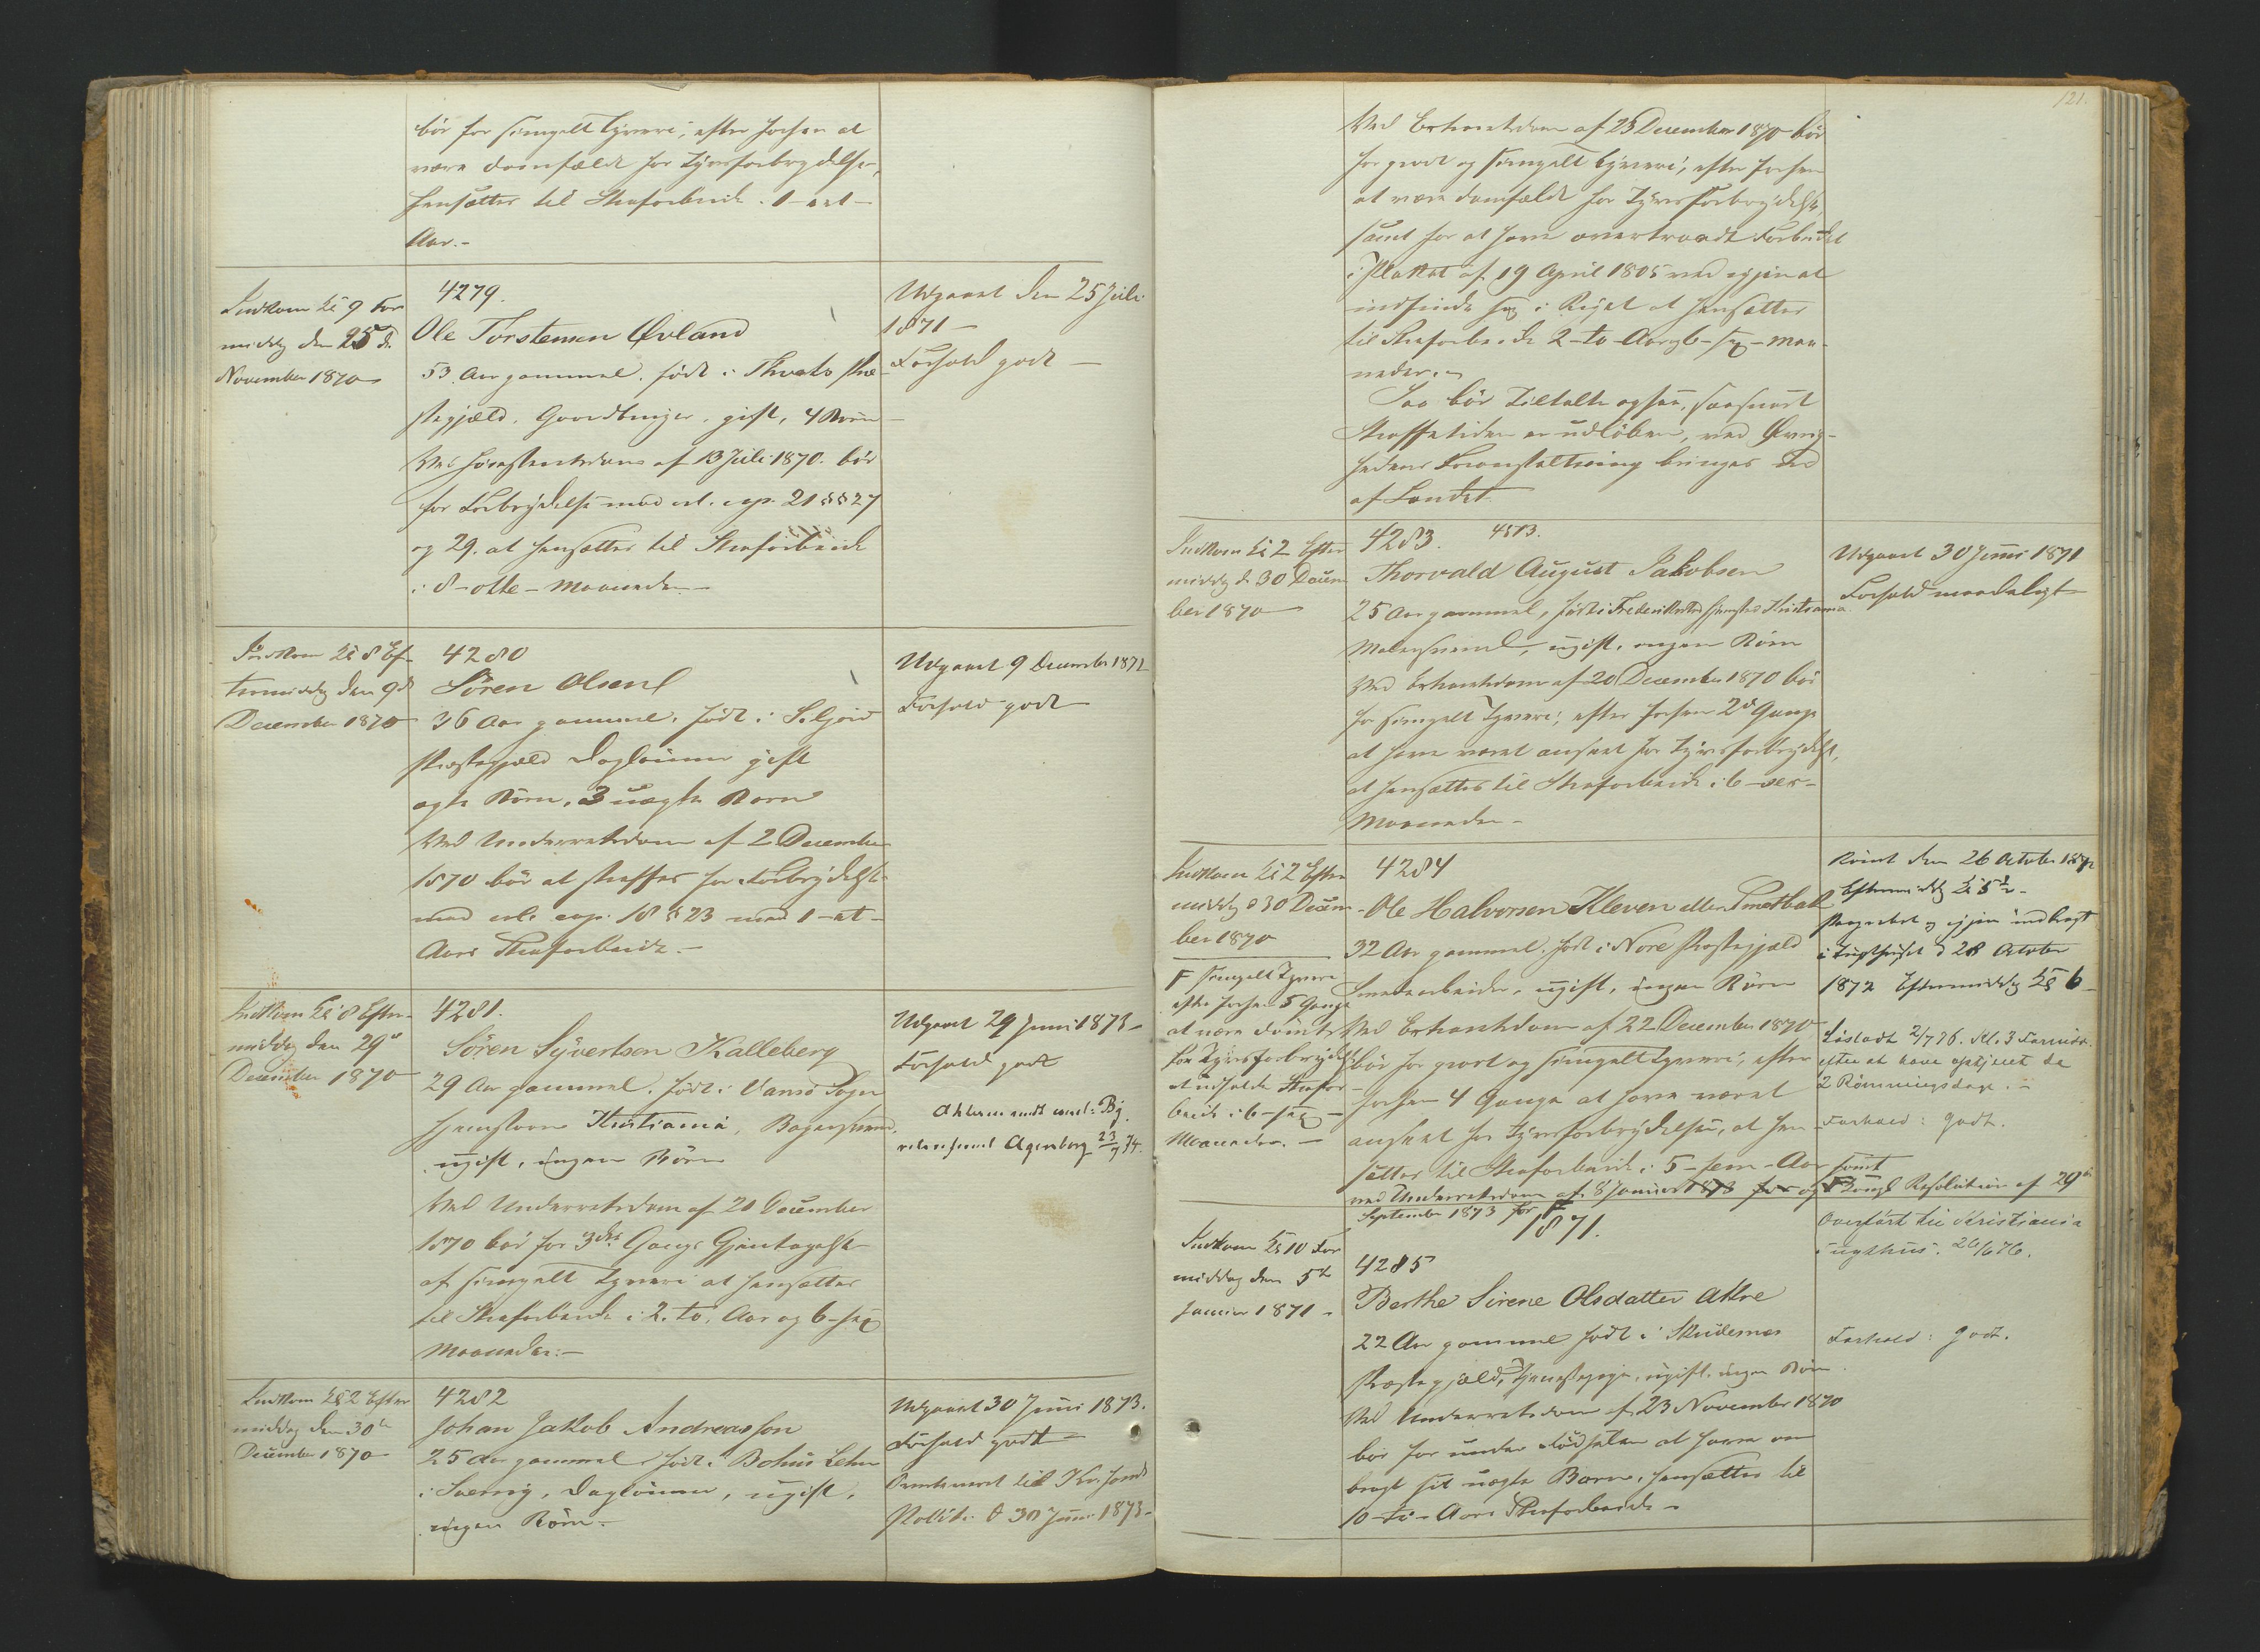 bör for simpelt Tyveri, efter forhen at
være domfældt for Tyvsforbrydelse,
hensættes til Strafarbeide i 1 - et -
Aar.-
Indkom Kl 9 For
middag den 25 d.
November 1870
4279.
Ole Torstensen Øvland
53 Aar gammel, født i Præ-
stegjæld. Gaardbruger, gift, 4 Børn
Ved Høiesteretsdom af 13 Juli 1870 bör
for Forbrydelse mod crl. cap. 21 §§ 27
og 29. at hensættes til Strafarbeide
i 8 - otte - Maaneder.-
Udgaaet den 25 Juli
1871 -
Forhold godt -
Indkom Kl 8 Ef-
termiddag den 9 d
December 1870
4280
Sören Olsen
36 Aar gammel, født i Seljord
Præstegjæld Dagløinner gift
ægte Børn, 3 uægte Børn
Ved Underretsdom af 2 December
1870 bör at straffes for Forbrydelse
mod crl. cap. 18 § 23 med 1 - et -
Aars Strafarbeide.-
Udgaaet 9 December 1871
Forhold godt
Indkom Kl 8 Efter-
middag den 29 d
December 1870
4281.
Sören Syvertsen Kalleberg
29 Aar gammel, født i Vanse Sogn
hjemstavn Kristiania, Bagersvend,
ugift, ingen Børn
Ved Underretsdom af 20 December
1870 bör for 3die Gangs Gjentagelse
af simpelt Tyveri at hensættes
til Strafarbeide i 2. to. Aar og 6 - sex
Maaneder.-
Udgaaet 29 Juni 1873 -
Forhold godt
Agerborg 23/9 74.
Indkom Kl 2 Efter
middag den 30 d
December 1870
4282
Johan Jakob Andreasson
25 Aar gammel født i Bohus Lehn
i Sverrig, Dagløinner, ugift,
ingen Børn.-
Udgaaet 30 Juni 1873.
Forhold godt
til Kr.sands
Politi d 30 Juni 1873 -
121.
Ved Extraretsdom af 23 December 1870 bör
for grovt og simpelt Tyveri, efter forhen
at være domfældt for Tyvsforbrydelse,
samt for at have overtraadt Forbudet
i Plakat af 19 April 1805 ved igjen at
indfinde sig i Riget at hensættes
til Strafarbeide 2 - to - Aar og 6 - sex - Maa-
neder.
Saa bör Tiltalte ogsaa, saasnart
Straffetiden er udløben, ved Øvrig-
hedens Foranstaltning bringes ud
af Landet
Indkom Kl 2 Efter
middag d 30 Decem-
ber 1870
4283. 4513.
Thorvald August Jakobsen
25 Aar gammel, født i Frederiksstad hjemsted Kristiania
Malersvend, ugift, ingen Børn
Ved Extraretsdom af 20 December 1870 bör
for simpelt Tyveri, efter forhen 2 d Gange
at have været anseet for Tyvsforbrydelse,
at hensættes til Strafarbeide i 6 - sex -
Maaneder -
Udgaaet 30 Juni 1871
Forhold maadeligt
Indkom Kl 2 Efter
middag d 30 Decem-
ber 1870
F simpelt Tyveri
efter forhen 5 Gange
at være dömt
for Tyvsforbrydelse
at udholde Strafar-
beide i 6 - sex -
Maaneder. -
4284
Ole Halvorsen Kleven eller Smetbak
32 Aar gammel, født i Nore Præstegjæld
arbeider, ugift, ingen Børn
Ved Extraretsdom af 22 December 1870
bör for grovt og simpelt Tyveri, efter
forhen 4 Gange at have været
anseet for Tyvsforbrydelser, at hen-
sættes til Strafarbeide i 5 - fem - Aar samt
ved Underretsdom af 8 Januar 1873 for og Kongl Resolution af 29 d
September 1873 for F
Römt den 26 October 1872
Eftermiddag Kl 5 1/2 -
Paagrebet og igjen indbragt
i Tugthuset d 28 October
1872 Eftermiddag Kl 6 -
Lösladt 2/7 76. Kl. 3 Formidd.
efter at have aftjent de
2 Römningsdage. -
Forhold: godt.
1871.
Indkom Kl 10 For
middag den 5 d
Januar 1871 -
4285
Berthe Sirene Olsdatter Akre
22 Aar gammel født i Skudesnæs
Præstegjæld, Tjenestepige, ugift, ingen Børn
Ved Underretsdom af 23 November 1870
bör for under Födselen at have om
bragt sit uægte Barn, hensættes til
10 - ti - Aars Strafarbeide -
Overfört til Kristiania
Tugthus. 26/6 76.
Forhold: godt.